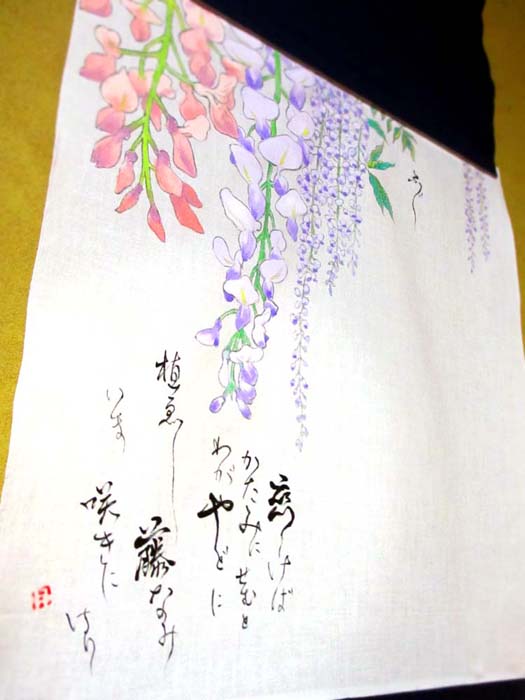 恋しけば
かたみにせむと
わがやどに
植ゑし
藤なみ
いま
咲きに
けり